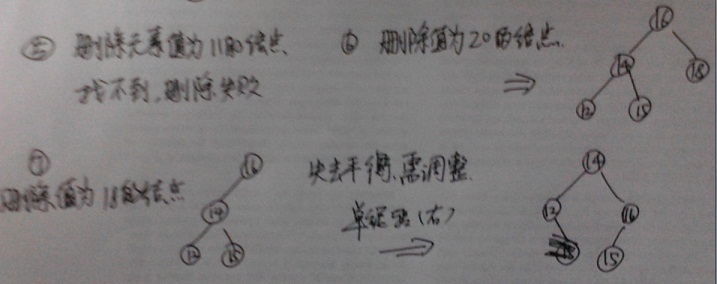 ⑤ 删除元素值为11的结点
找不到,删除失败
⑥ 删除值为20的结点.
⇒
16
14
18
12
15
⑦
删除值为18的结点
16
14
12
15
失去平衡.需调整.
单旋转(右)
⇒
14
12
16
15